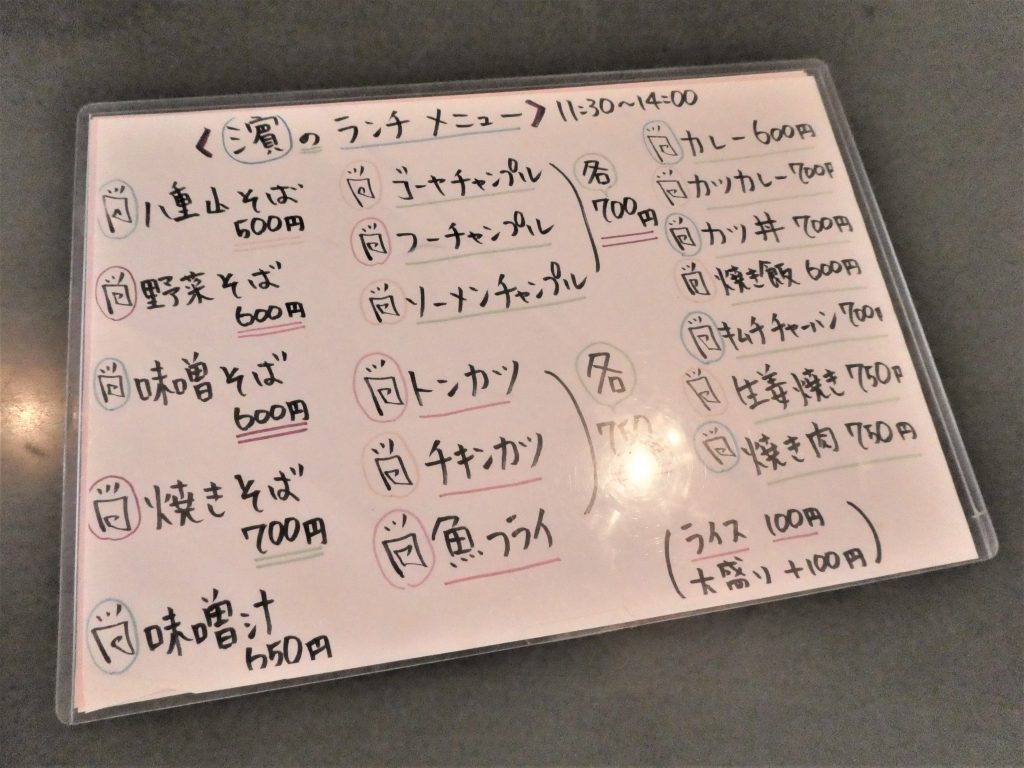 〈濱のランチメニュー〉11:30～14:00
八重山そば
500円
野菜そば
600円
味噌そば
600円
焼きそば
700円
味噌汁
650円
ゴーヤチャンプル
フーチャンプル
ソーメンチャンプル
各
700円
トンカツ
チキンカツ
魚フライ
各
750
カレー 600円
カツカレー 700円
カツ丼 700円
焼き飯 600円
キムチチャーハン 700円
生姜焼き 750円
焼き肉 750円
(ライス 100円
大盛り +100円)